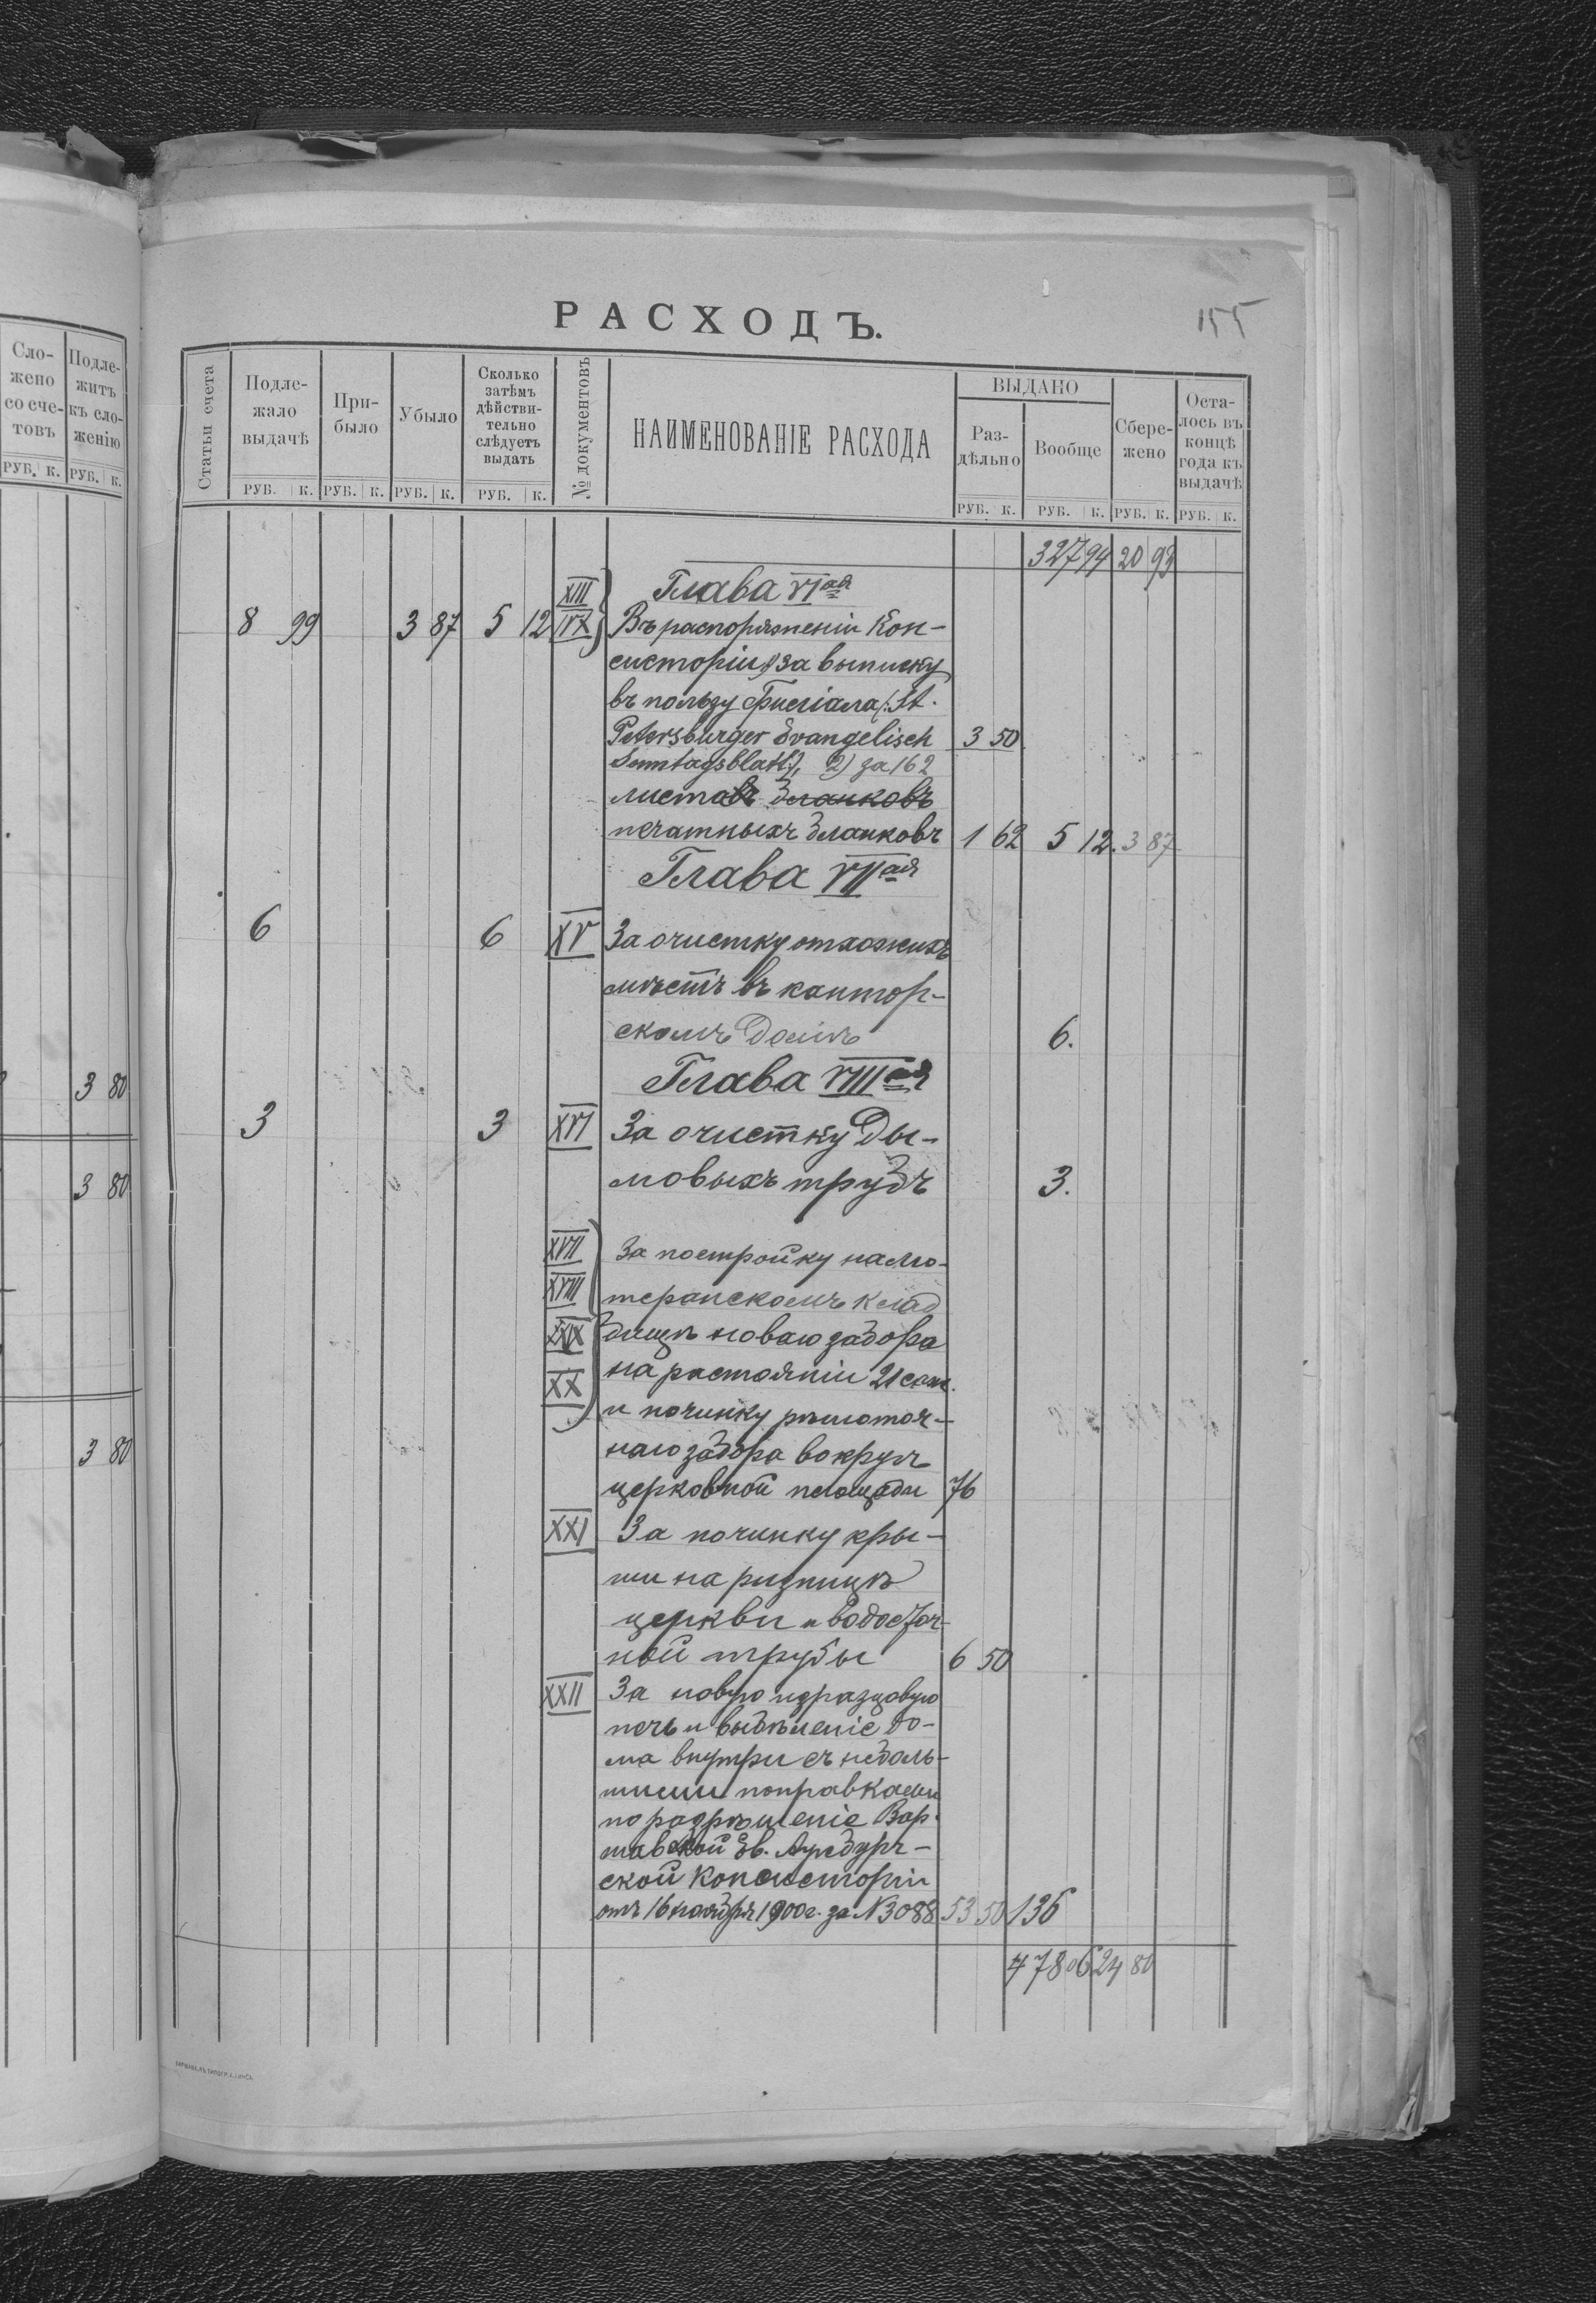 РАСХОДЪ.
155
Сло-
жено
со сче-
товъ
Подле-
житъ
къ сло-
женію
РУБ. К. РУБ. К.
3 80
3 80
3 80
Статьи счета
Подле-
жало
выдачѣ
При-
было
Убыло
Сколько
затѣмъ
дѣйстви-
тельно
слѣдуетъ
выдать
№ документовъ
НАИМЕНОВАНІЕ РАСХОДА
ВЫДАНО
Раз-
дѣльно
Вообще
Сбере-
жено
Оста-
лось въ
концѣ
года къ
выдачѣ
РУБ. К. РУБ. К. РУБ. К. РУБ. К. РУБ. К. РУБ. К. РУБ. К. РУБ. К.
327 94 20 93
XIII Глава VIая
8 99 3 87 5 12 Въ распоряженіи Кон-
систоріи 1) за выписку
въ пользу Филіала /: St.
Petersburger Evangelisch 3 50
Sonntagsblatt :/, 2) за 162
листовъ бланковъ
печатныхъ бланковъ 1 62 5 12. 3 87
Глава VIIая
6 6 XV За очистку отхожихъ
мѣстъ въ кантор-
скомъ домѣ 6.
Глава VIIIая
3 3 XVI За очистку ды-
мовыхъ трубъ 3.
XVII За постройку на лю-
XVIII теранскомъ клад
XXIX бищѣ новаго забора
XX на растояніи 21 саж.
и починку рѣшоточ-
наго забора вокругъ
церковной площади 76
XXI За починку кры-
ши на ризницѣ
церкви и водосточ-
ной трубы 6 50
XXII За новую изразцовую
печь и выбѣленіе до-
ма внутри съ неболь-
шими поправками
по разрѣшеніе Вар-
шавской Ев. Аугсбург-
ской Консисторіи
отъ 16 ноября 1900 г. за N 3088 53 50 136
478 06 24 80